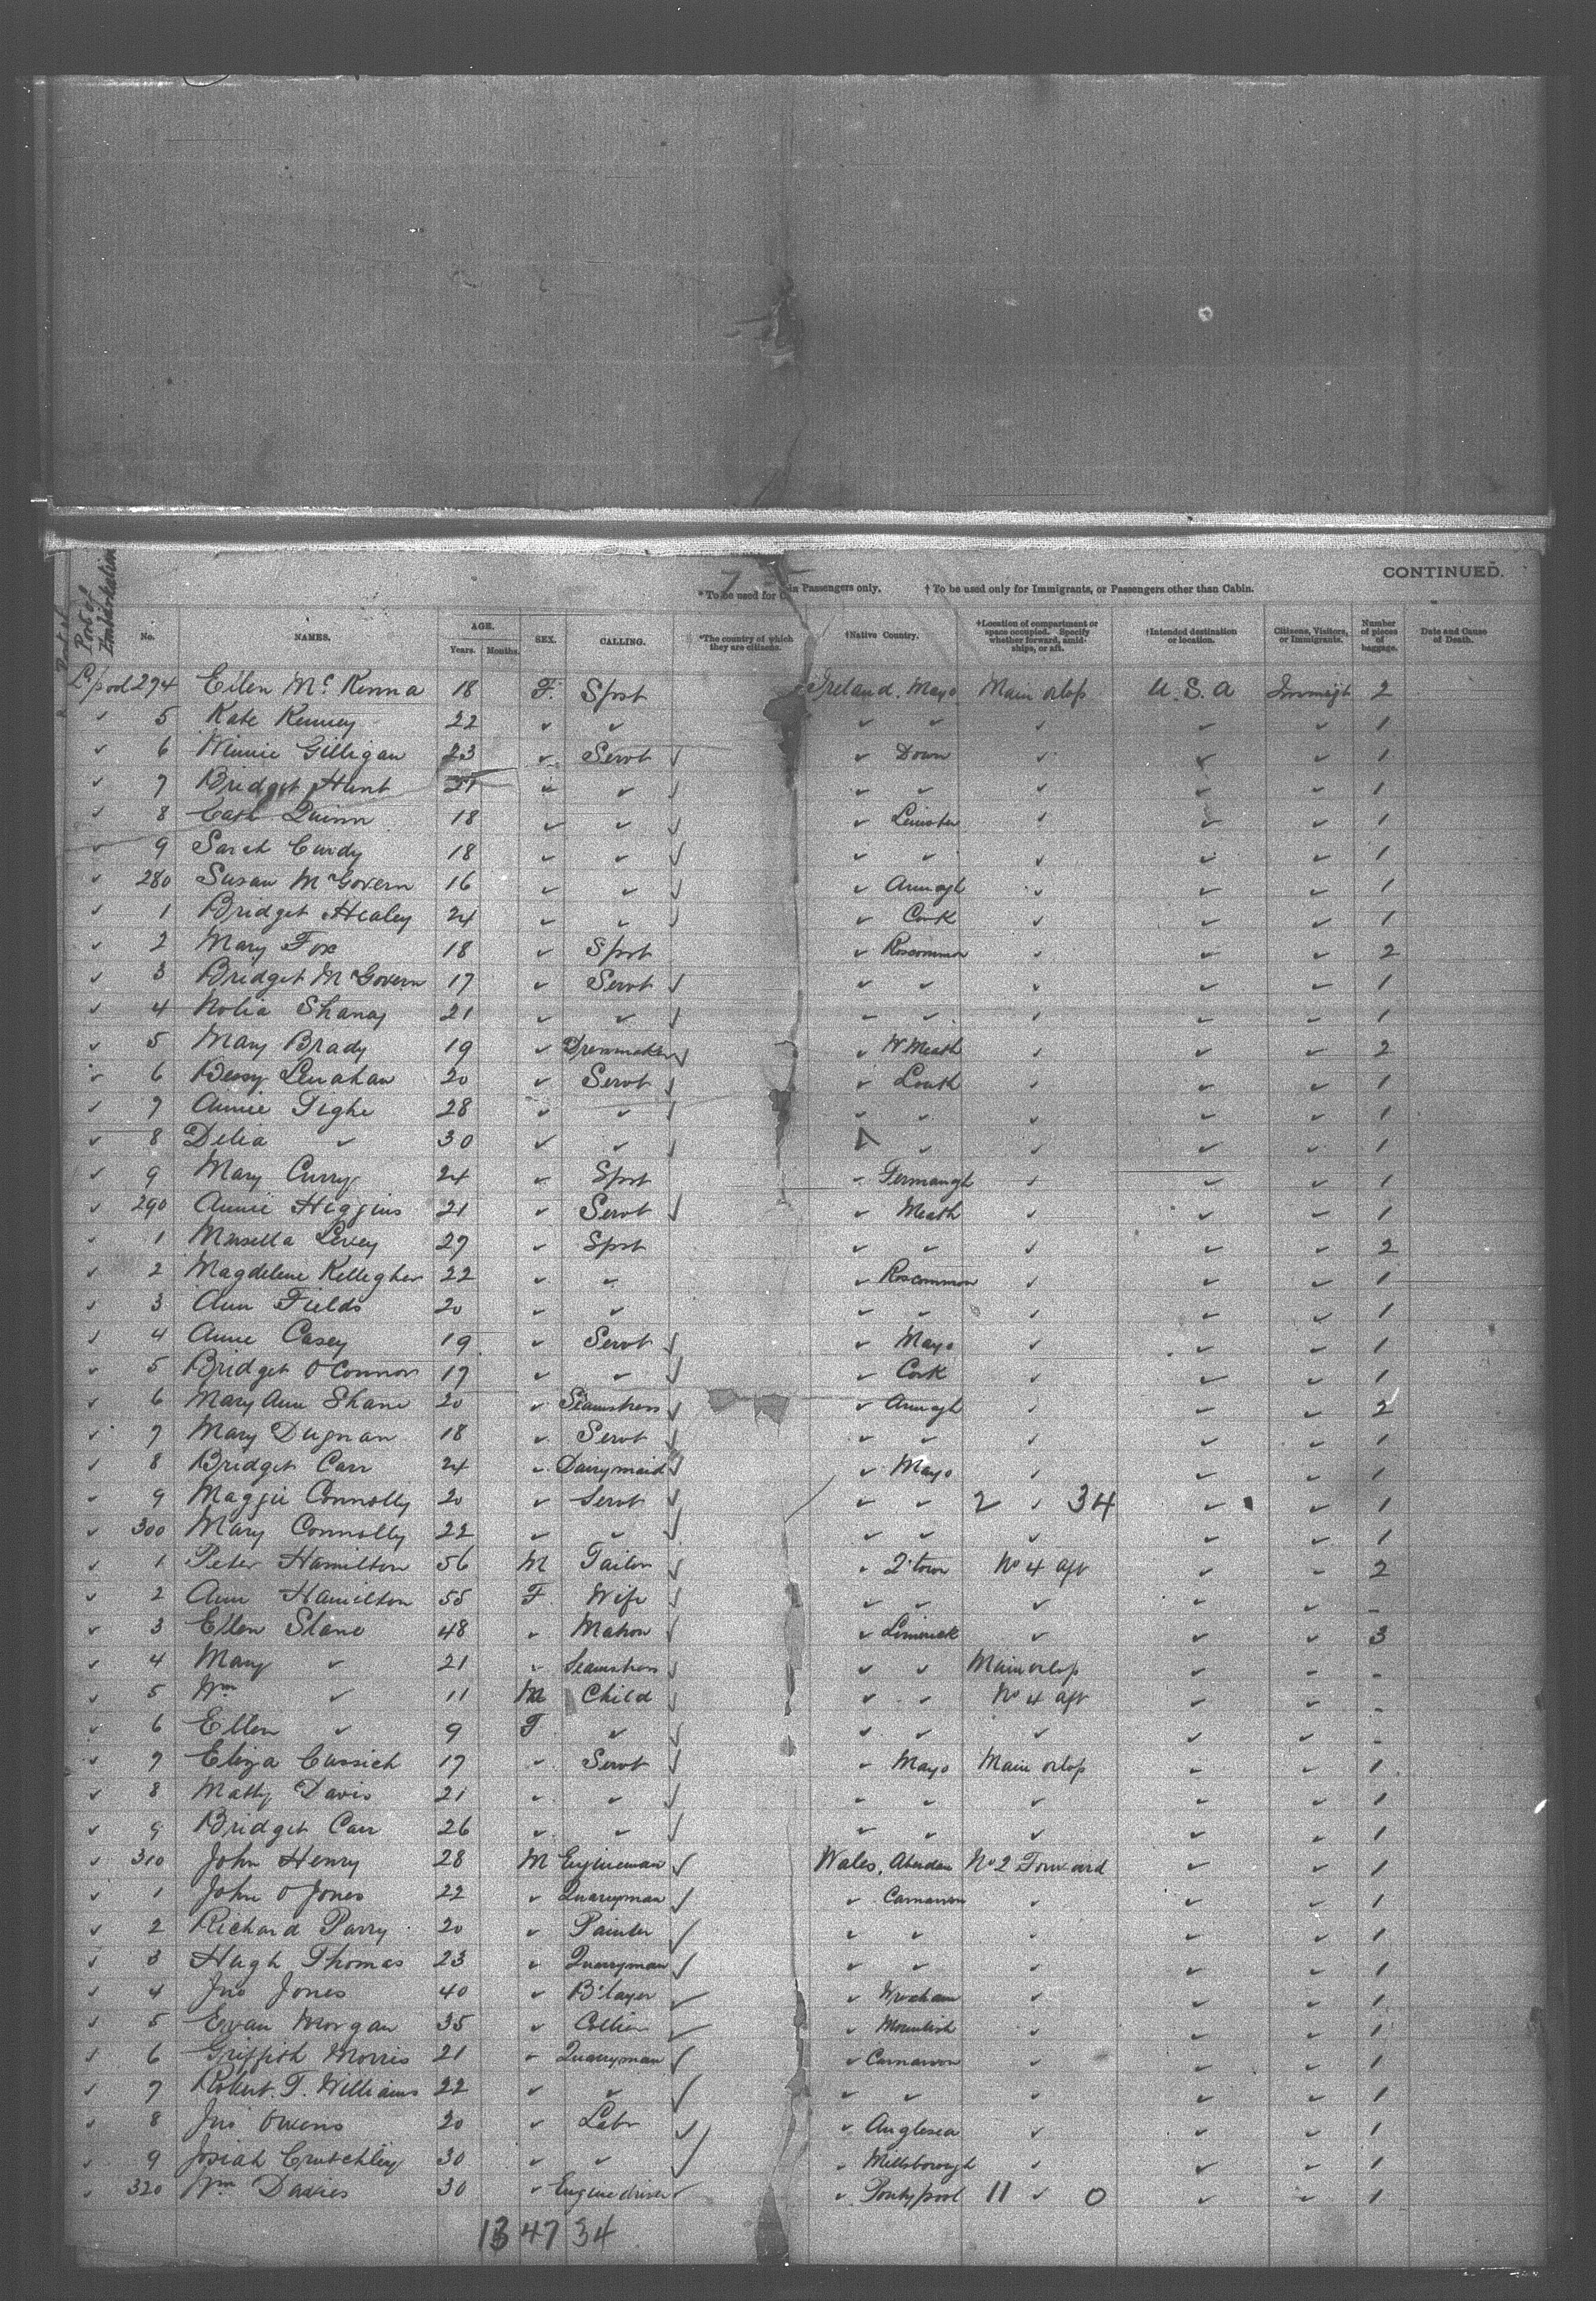 7
CONTINUED.
*To be used for C in Passengers only. † To be used only for Immigrants, or Passengers other than Cabin.
Port of Embarkation No. NAMES. AGE. Years. Months. SEX. CALLING. *The country of which they are citizens. †Native Country. †Location of compartment or space occupied. Specify whether forward, amidships, or aft. †Intended destination or location. Citizens, Visitors, or Immigrants. Number of pieces of baggage. Date and Cause of Death.
L'pool 274 Ellen Mc Kenna 18 F. Spst Ireland, Mayo Main orlop U.S.A Immigt 2
✓ 5 Kate Kenney 22 ✓ ✓ ✓ ✓ ✓ ✓ ✓ 1
✓ 6 Winnie Gilligan 23 ✓ Servt ✓ ✓ Down ✓ ✓ ✓ 1
✓ 7 Bridget Hunt 21 ✓ ✓ ✓ ✓ ✓ ✓ ✓ ✓ 1
✓ 8 Cath Quinn 18 ✓ ✓ ✓ ✓ Leinster ✓ ✓ ✓ 1
✓ 9 Sarah Curdy 18 ✓ ✓ ✓ ✓ ✓ ✓ ✓ ✓ 1
✓ 280 Susan McGovern 16 ✓ ✓ ✓ ✓ Armagh ✓ ✓ ✓ 1
✓ 1 Bridget Healey 24 ✓ ✓ ✓ ✓ Cork ✓ ✓ ✓ 1
✓ 2 Mary Fox 18 ✓ Spst ✓ Roscommon ✓ ✓ ✓ 2
✓ 3 Bridget McGovern 17 ✓ Servt ✓ ✓ ✓ ✓ ✓ ✓ 1
✓ 4 Nolia Shanay 21 ✓ ✓ ✓ ✓ ✓ ✓ ✓ ✓ 1
✓ 5 Mary Brady 19 ✓ Dressmaker ✓ ✓ W Meath ✓ ✓ ✓ 2
✓ 6 Bessy Lenahan 20 ✓ Servt ✓ ✓ Louth ✓ ✓ ✓ 1
✓ 7 Annie Tighe 28 ✓ ✓ ✓ ✓ ✓ ✓ ✓ ✓ 1
✓ 8 Delia ✓ 30 ✓ ✓ ✓ ✓ ✓ ✓ ✓ ✓ 1
✓ 9 Mary Curry 24 ✓ Spst ✓ Fermangh ✓ ✓ ✓ 1
✓ 290 Annie Higgins 21 ✓ Servt ✓ ✓ Meath ✓ ✓ ✓ 1
✓ 1 Levey 27 ✓ Spst ✓ ✓ ✓ ✓ ✓ 2
✓ 2 Magdelene Kellegher 22 ✓ ✓ ✓ Roscommon ✓ ✓ ✓ 1
✓ 3 Ann Fields 20 ✓ ✓ ✓ ✓ ✓ ✓ ✓ 1
✓ 4 Anne Casey 19 ✓ Servt ✓ ✓ Mayo ✓ ✓ ✓ 1
✓ 5 Bridget O'Connor 17 ✓ ✓ ✓ ✓ Cork ✓ ✓ ✓ 1
✓ 6 Mary Ann Shane 20 ✓ Seamstress ✓ ✓ Armagh ✓ ✓ ✓ 2
✓ 7 Mary Dugnan 18 ✓ Servt ✓ ✓ ✓ ✓ ✓ ✓ 1
✓ 8 Bridget Carr 24 ✓ Dairymaid ✓ ✓ Mayo ✓ ✓ ✓ 1
✓ 9 Maggie Connolly 20 ✓ Servt ✓ ✓ ✓ 2 ✓ 34 ✓ ✓ 1
✓ 300 Mary Connolly 22 ✓ ✓ ✓ ✓ ✓ ✓ ✓ ✓ 1
✓ 1 Peter Hamilton 56 M Tailor ✓ ✓ Q'town No 4 aft ✓ ✓ 2
✓ 2 Ann Hamilton 55 F Wife ✓ ✓ ✓ ✓ ✓ ✓ -
✓ 3 Ellen Slane 48 ✓ Matron ✓ ✓ Limerick ✓ ✓ ✓ 3
✓ 4 Mary ✓ 21 ✓ Seamstress ✓ ✓ ✓ Main orlop ✓ ✓ -
✓ 5 Wm ✓ 11 M Child ✓ ✓ ✓ No 4 aft ✓ ✓ -
✓ 6 Ellen ✓ 9 F ✓ ✓ ✓ ✓ ✓ ✓ ✓ -
✓ 7 Eliza Cussick 17 ✓ Servt ✓ ✓ Mayo Main orlop ✓ ✓ 1
✓ 8 Matty Davis 21 ✓ ✓ ✓ ✓ ✓ ✓ ✓ ✓ 1
✓ 9 Bridget Carr 26 ✓ ✓ ✓ ✓ ✓ ✓ ✓ ✓ 1
✓ 310 John Henry 28 M Engineman ✓ Wales, Aberdare No 2 Forward ✓ ✓ 1
✓ 1 John O Jones 22 ✓ Quarryman ✓ ✓ Carnarvon ✓ ✓ ✓ 1
✓ 2 Richard Parry 20 ✓ Painter ✓ ✓ ✓ ✓ ✓ ✓ 1
✓ 3 Hugh Thomas 23 ✓ Quarryman ✓ ✓ ✓ ✓ ✓ ✓ 1
✓ 4 Jno Jones 40 ✓ B'layer ✓ ✓ Wrexham ✓ ✓ ✓ 1
✓ 5 Evan Morgan 35 ✓ Collier ✓ ✓ ✓ ✓ ✓ 1
✓ 6 Griffith Morris 21 ✓ Quarryman ✓ ✓ Carnarvon ✓ ✓ ✓ 1
✓ 7 Robert. T. Williams 22 ✓ ✓ ✓ ✓ ✓ ✓ ✓ ✓ 1
✓ 8 Jno Owens 20 ✓ Labr ✓ ✓ Anglesea ✓ ✓ ✓ 1
✓ 9 Josiah Crutchley 30 ✓ ✓ ✓ ✓ Millsborough ✓ ✓ ✓ 1
✓ 320 Wm Davies 30 ✓ Engine driver ✓ ✓ Pontypool 11 ✓ 0 ✓ ✓ 1
13 47 34